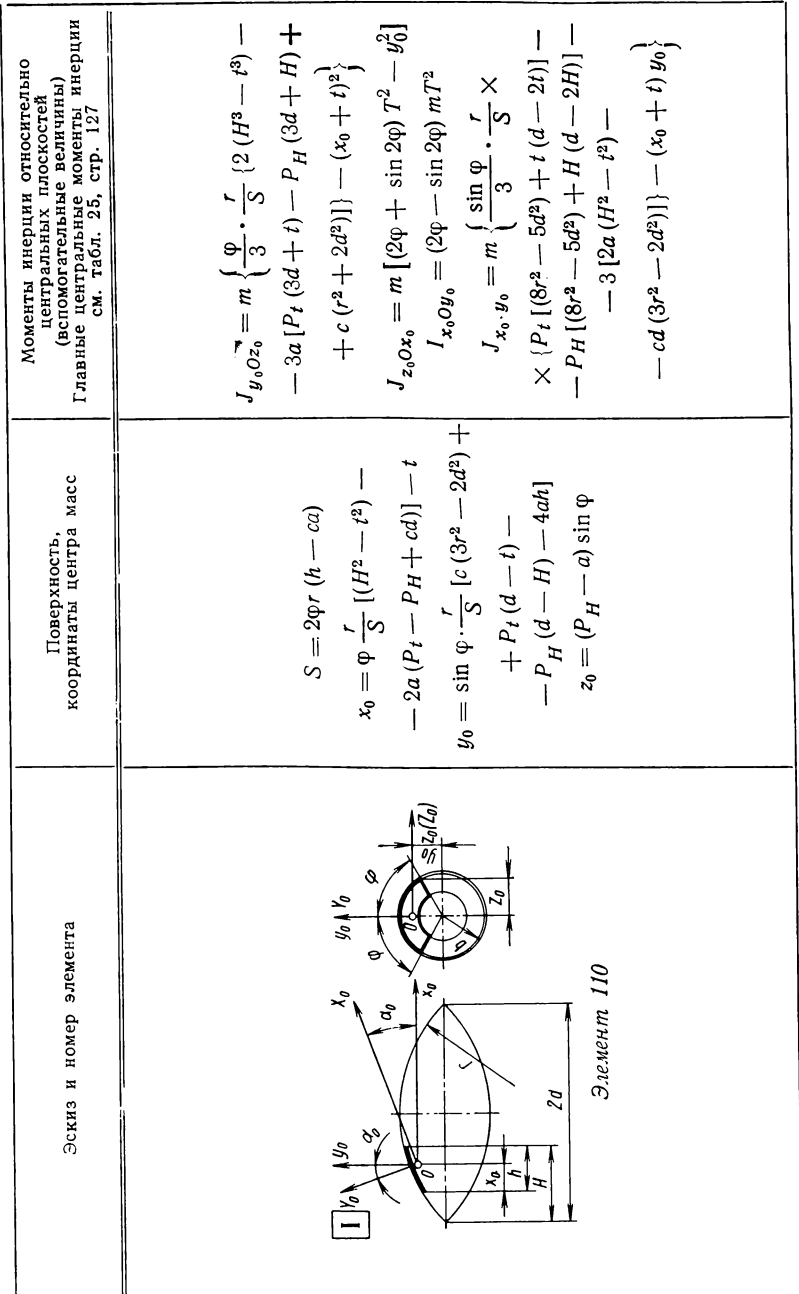 Эскиз и номер элемента
Поверхность,
координаты центра масс
Моменты инерции относительно
центральных плоскостей
(вспомогательные величины)
Главные центральные моменты инерции
см. табл. 25, стр. 127
I
Y₀ α₀ y₀ X₀ α₀ x₀ O r x₀ h H 2d
y₀ Y₀ φ φ O z₀(Z₀) y₀ z₀
Элемент 110
S = 2φr (h — ca)
x₀ = φ r/S [(H² — t²) —
— 2a (P_t — P_H + cd)] — t
y₀ = sin φ · r/S [c (3r² — 2d²) +
+ P_t (d — t) —
— P_H (d — H) — 4ah]
z₀ = (P_H — a) sin φ
J_y₀Oz₀ = m {φ/3 · r/S {2 (H³ — t³) —
— 3a [P_t (3d + t) — P_H (3d + H) +
+ c (r² + 2d²)]} — (x₀ + t)²}
J_z₀Ox₀ = m [(2φ + sin 2φ) T² — y₀²]
I_x₀Oy₀ = (2φ — sin 2φ) mT²
J_x₀·y₀ = m {sin φ/3 · r/S ×
× {P_t [(8r² — 5d²) + t (d — 2t)] —
— P_H [(8r² — 5d²) + H (d — 2H)] —
— 3 [2a (H² — t²) —
— cd (3r² — 2d²)]} — (x₀ + t) y₀}